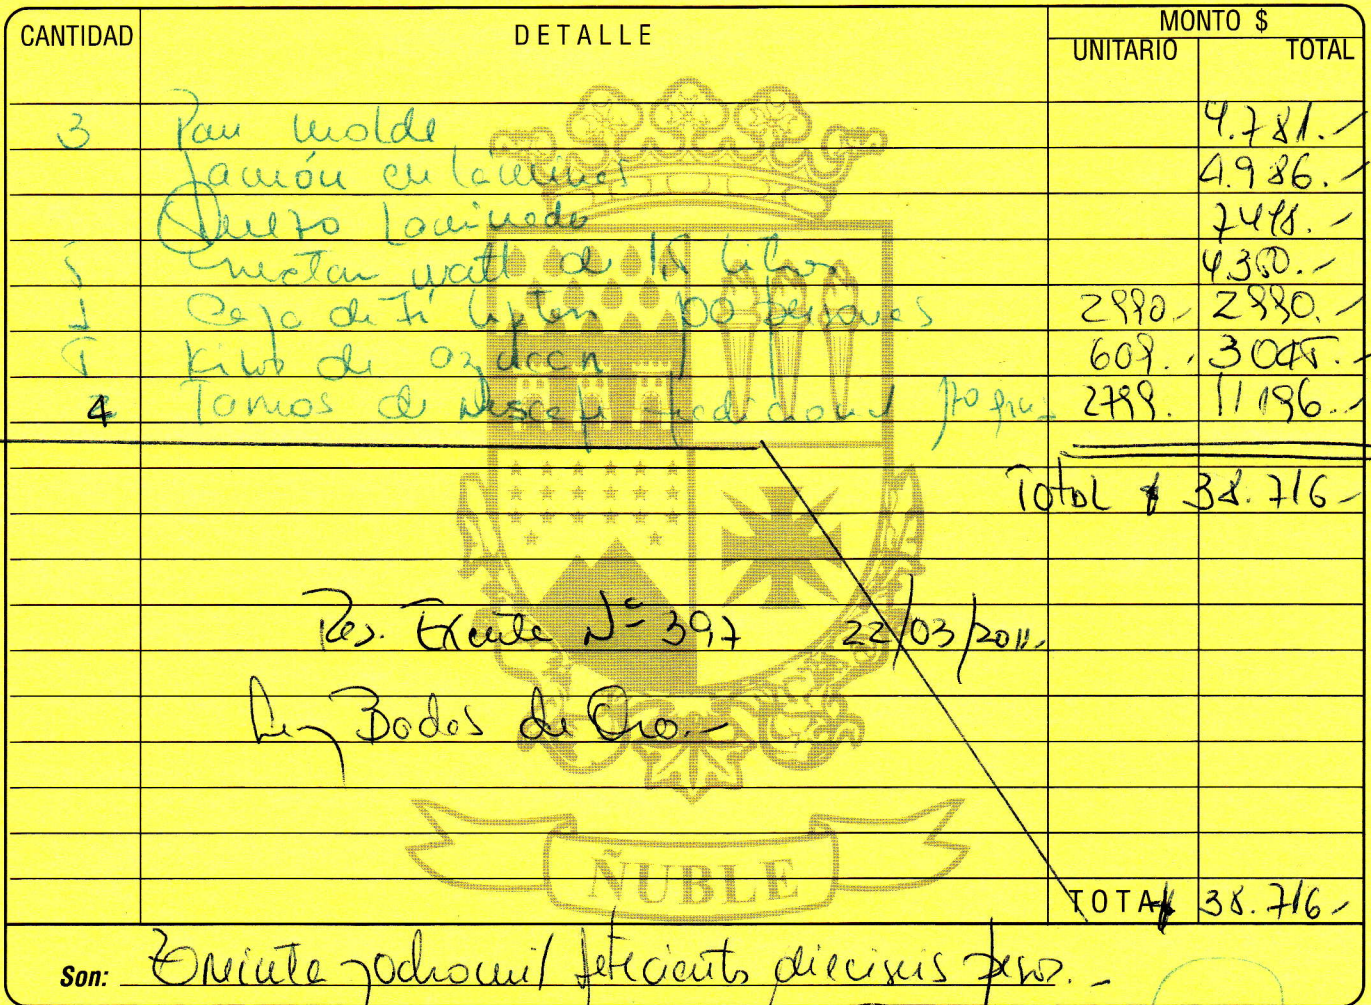 CANTIDAD DETALLE MONTO $
UNITARIO TOTAL
3 Pan molde 4.781.-
Jamón en laminas 4.986.-
Queso laminado 7418.-
5 nectar watt de 1.5 litros 4300.-
1 Caja de Té lipton 100 2990.- 2990.-
5 Kilos de azucar 609.- 3045.-
4 Tarros de Nescafe tradicional 170 2799. 11196.-
Total $ 38.716-
Res. Exenta N° 397 22/03/2011.
Bodas de Oro.-
ÑUBLE
TOTAL 38.716.-
Son: Treinta y ocho mil setecientos dieciseis pesos.-